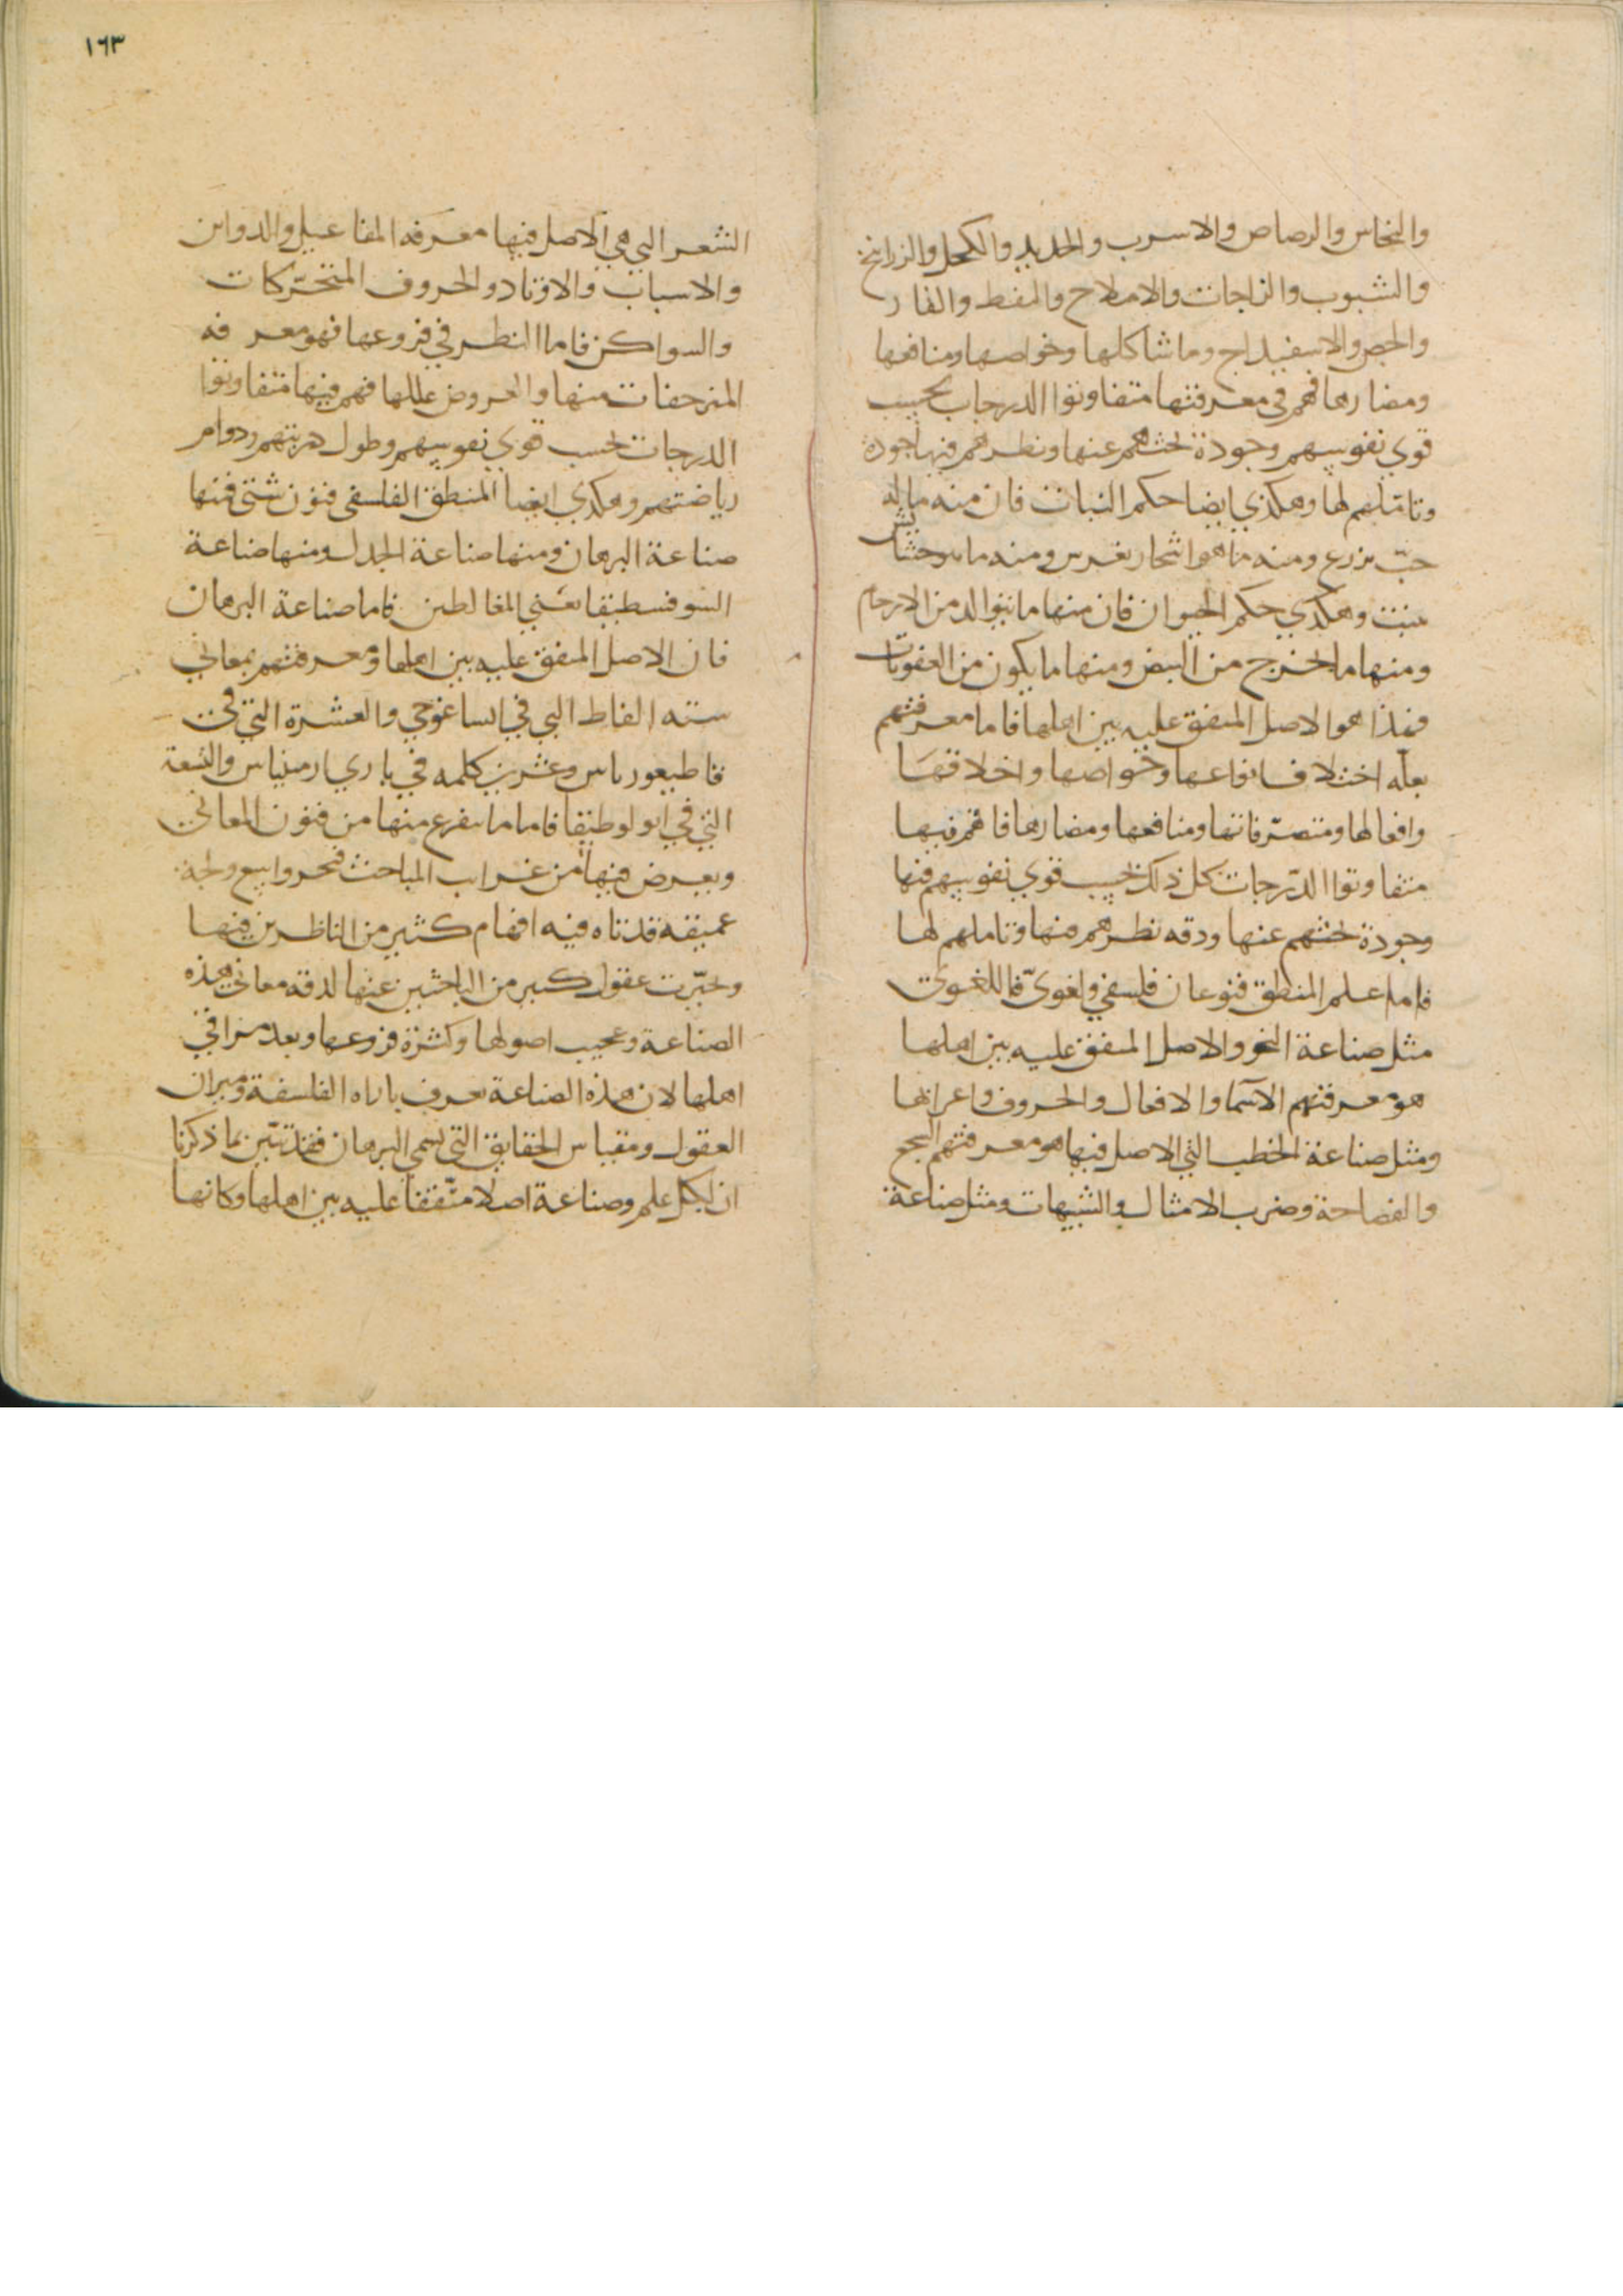 والنحاس والرصاص والاسرب والحديد والكحل والزرانيخ
والشبوب والزاجات والاملاح والنفط والقار
والجص والاسفيداج وما شاكلها وخواصها ومنافعها
ومضارها فهم في معرفتها متفاوتوا الدرجات بحسب
قوي نفوسهم وجودة بحثهم عنها ونظرهم فيها جودة
وتاملهم لها وهكذي ايضا حكم النبات فان منه ماله
حبّ يزرع ومنه ما هو اشجار تغرس ومنه ما هو حشائش
تنبت وهكذي حكم الحيوان فان منها ما يتوالد من الارحام
ومنها ما يخرج من البيض ومنها ما يكون من العفونات
فهذا هو الاصل المتفق عليه بين اهلها فاما معرفتهم
بعلة اختلاف انواعها وخواصها واخلاقها
وافعالها ومتصرّفاتها ومنافعها ومضارها فانهم فيها
متفاوتوا الدّرجات كل ذلك بحسب قوي نفوسهم فيها
وجودة بحثهم عنها ودقه نظرهم فيها وتاملهم لها
فاما علم المنطق فنوعان فلسفي ولغويّ فاللغوي
مثل صناعة النحو والاصل المتفق عليه بين اهلها
هو معرفتهم الاسما والافعال والحروف واعرابها
ومثل صناعة الخطب التي الاصل فيها هو معرفتهم السجع
والفصاحة وضرب الامثال والتشبيهات ومثل صناعة
١٦٣
الشعر التي هي الاصل فيها معرفه المفاعيل والدواير
والاسباب والاوتاد والحروف المتحرّكات
والسواكن فاما النظر في فروعها فهو معرفه
المنزحفات منها والعروض عللها فهم فيها متفاوتوا
الدرجات بحسب قوي نفوسهم وطول دربتهم ودوام
رياضتهم وهكذي ايضا المنطق الفلسفي فنون شتى فمنها
صناعة البرهان ومنها صناعة الجدل ومنها صناعة
السوفسطيقا يعني المغالطين فاما صناعة البرهان
فان الاصل المتفق عليه بين اهلها ومعرفتهم بمعاني
سته الفاظ التي في ايساغوجي والعشرة التي في
قاطيغورياس وعشرين كلمه في باري ارمنياس والسبعة
التي في انولوطيقا فاما ما يتفرع منها من فنون المعاني
ويعرض فيها من غرايب المباحث فبحر واسع ولجة
عميقه قد تاه فيه افهام كثير من الناظرين فيها
وتحيّرت عقول كثير من الباحثين عنها لدقه معاني هذه
الصناعة وعجيب اصولها وكثرة فروعها وبعد مراقي
اهلها لان هذه الصناعة تعرف باداه الفلسفة وميزان
العقول ومقياس الحقايق التي تسمى البرهان فقد تبيّن بما ذكرنا
ان لكل علم وصناعة اصلا متّفقا عليه بين اهلها وكانها